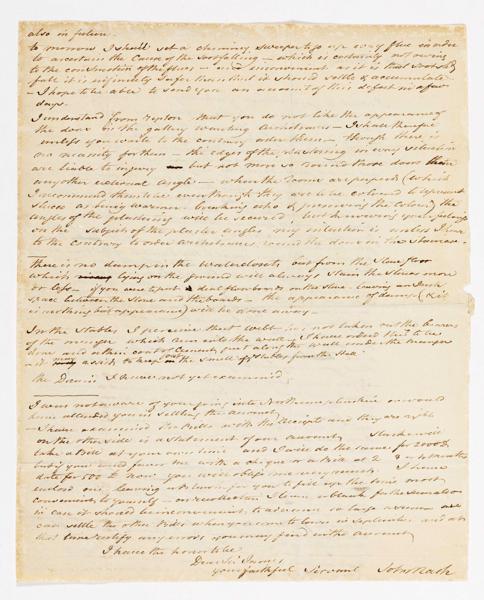 also in future.
to morrow I shall set a chimney sweeper to go up every flue in order
to ascertain the Cause of the Sootfalling – which is certainly not owing
to the construction of the flues – and inconvenient as it is that Soot should
fall it is infinitely safer than that it should settle & accumulate
– I hope to be able to send you an account of this defect in a few
days.
I understand from Repton that you do not like the appearance of
the doors in the gallery wanting Architraves – I shall therefore
unless you write to the contrary order them – though there is
no necessity for them – the edges of the plastering in every situation
are liable to injury but not more so round those doors than
any other external angle – when the rooms are papered (which
I recommend
the angles of the plastering will be secured, but knowing your feelings
on the subject of the plaster angles my intention is unless I hear
to the contrary to order Architraves round the doors in the Staircase.
There is no damp in the Waterclosets but from the Stone floor
which lying on the ground will always stain the Stones more
or less – if you were to put a deal floor boards on the Stone leaving an Inch
space between the Stone and the boards – the appearance of damp (& it
is nothing but appearance) will be done away –
In the Stables I perceive that Webb has not taken out the bearers
of the manger which run into the wall – I have ordered that to be
done and when cement put along the wall under the manger
and may assist to keep out the smell of Stables from the Hall
the Drains I have not yet examined
I was not aware of your going into Northamptonshire or would
have attended you in settling the Account,
– I have examined the Bills with the Receipts and they are right
on the other side is a statement of our account. Stuck will
take a Bill at your own time and I will do the same for 2000£
but if you could favor me with a cheque or a Bill at 2 or 3 months
date for 500£ now you will oblige me very much. I have
enclosed one leaving a blank for you to fill up the time most
convenient to yourself – on recollection I leave a blank for the sum also
in case it should be inconvenient to advance so large a sum – we
can settle the other Bills when you come to town in September and at
that time rectify any errors you may find in the account
I have the honor to be
Dear Sir James
your faithful Servant John Nash